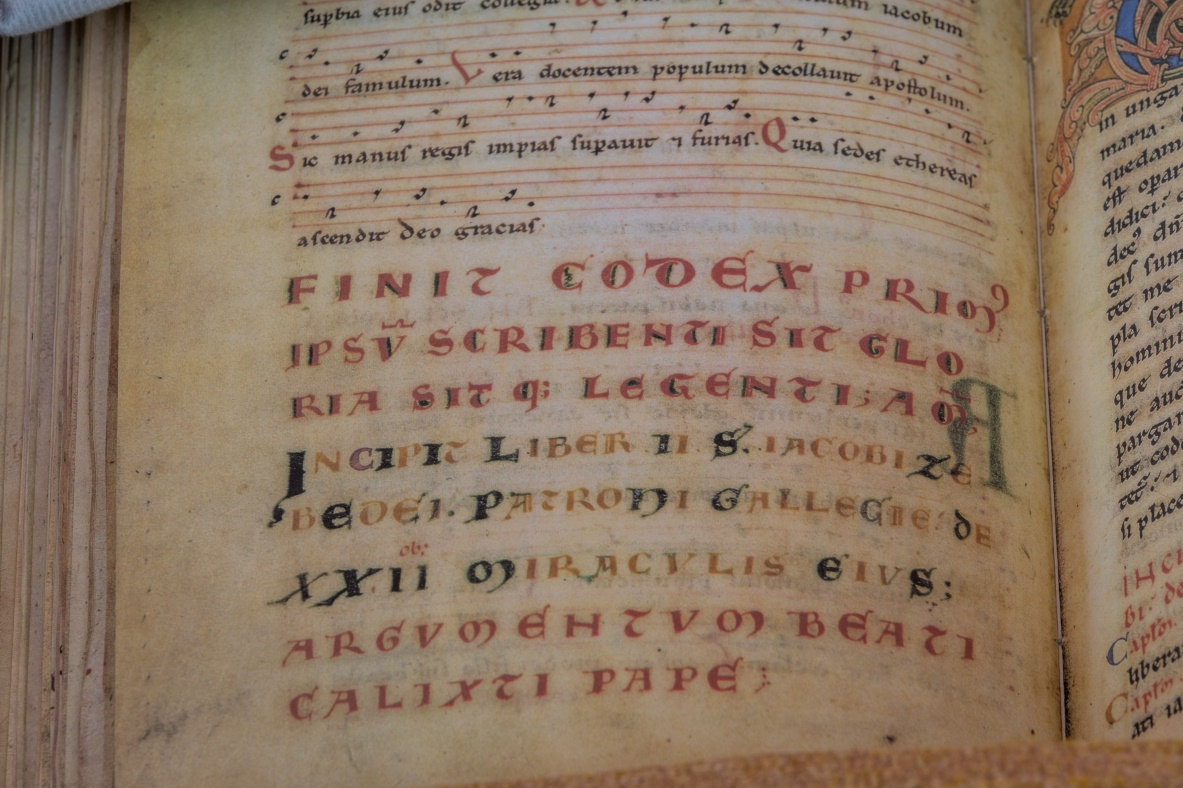 supbia eius odit iacobum
dei famulum. Vera docentem populum decollauit apostolum.
Sic manus regis impias supauit ⁊ furias. Quia sedes ethereas
ascendit deo gracias.
FINIT CODEX PRIMꝰ
IPSV̄ SCRIBENTI SIT GLO
RIA SIT Q; LEGENTI; AM̄
INCIPIT LIBER II S. IACOBI ZE
BEDEI. PATRONI GALLECIE. DE
XXII ob; MIRACVLIS EIVS;
ARGVMENTVM BEATI
CALIXTI PAPE;
in unga
maria.
quedam
est opar
didici:
gis sum
tet me
pla scri
homini
que de
ne auc
pargar
ut cod
si place
INCI
Capłm
libera
Capłm